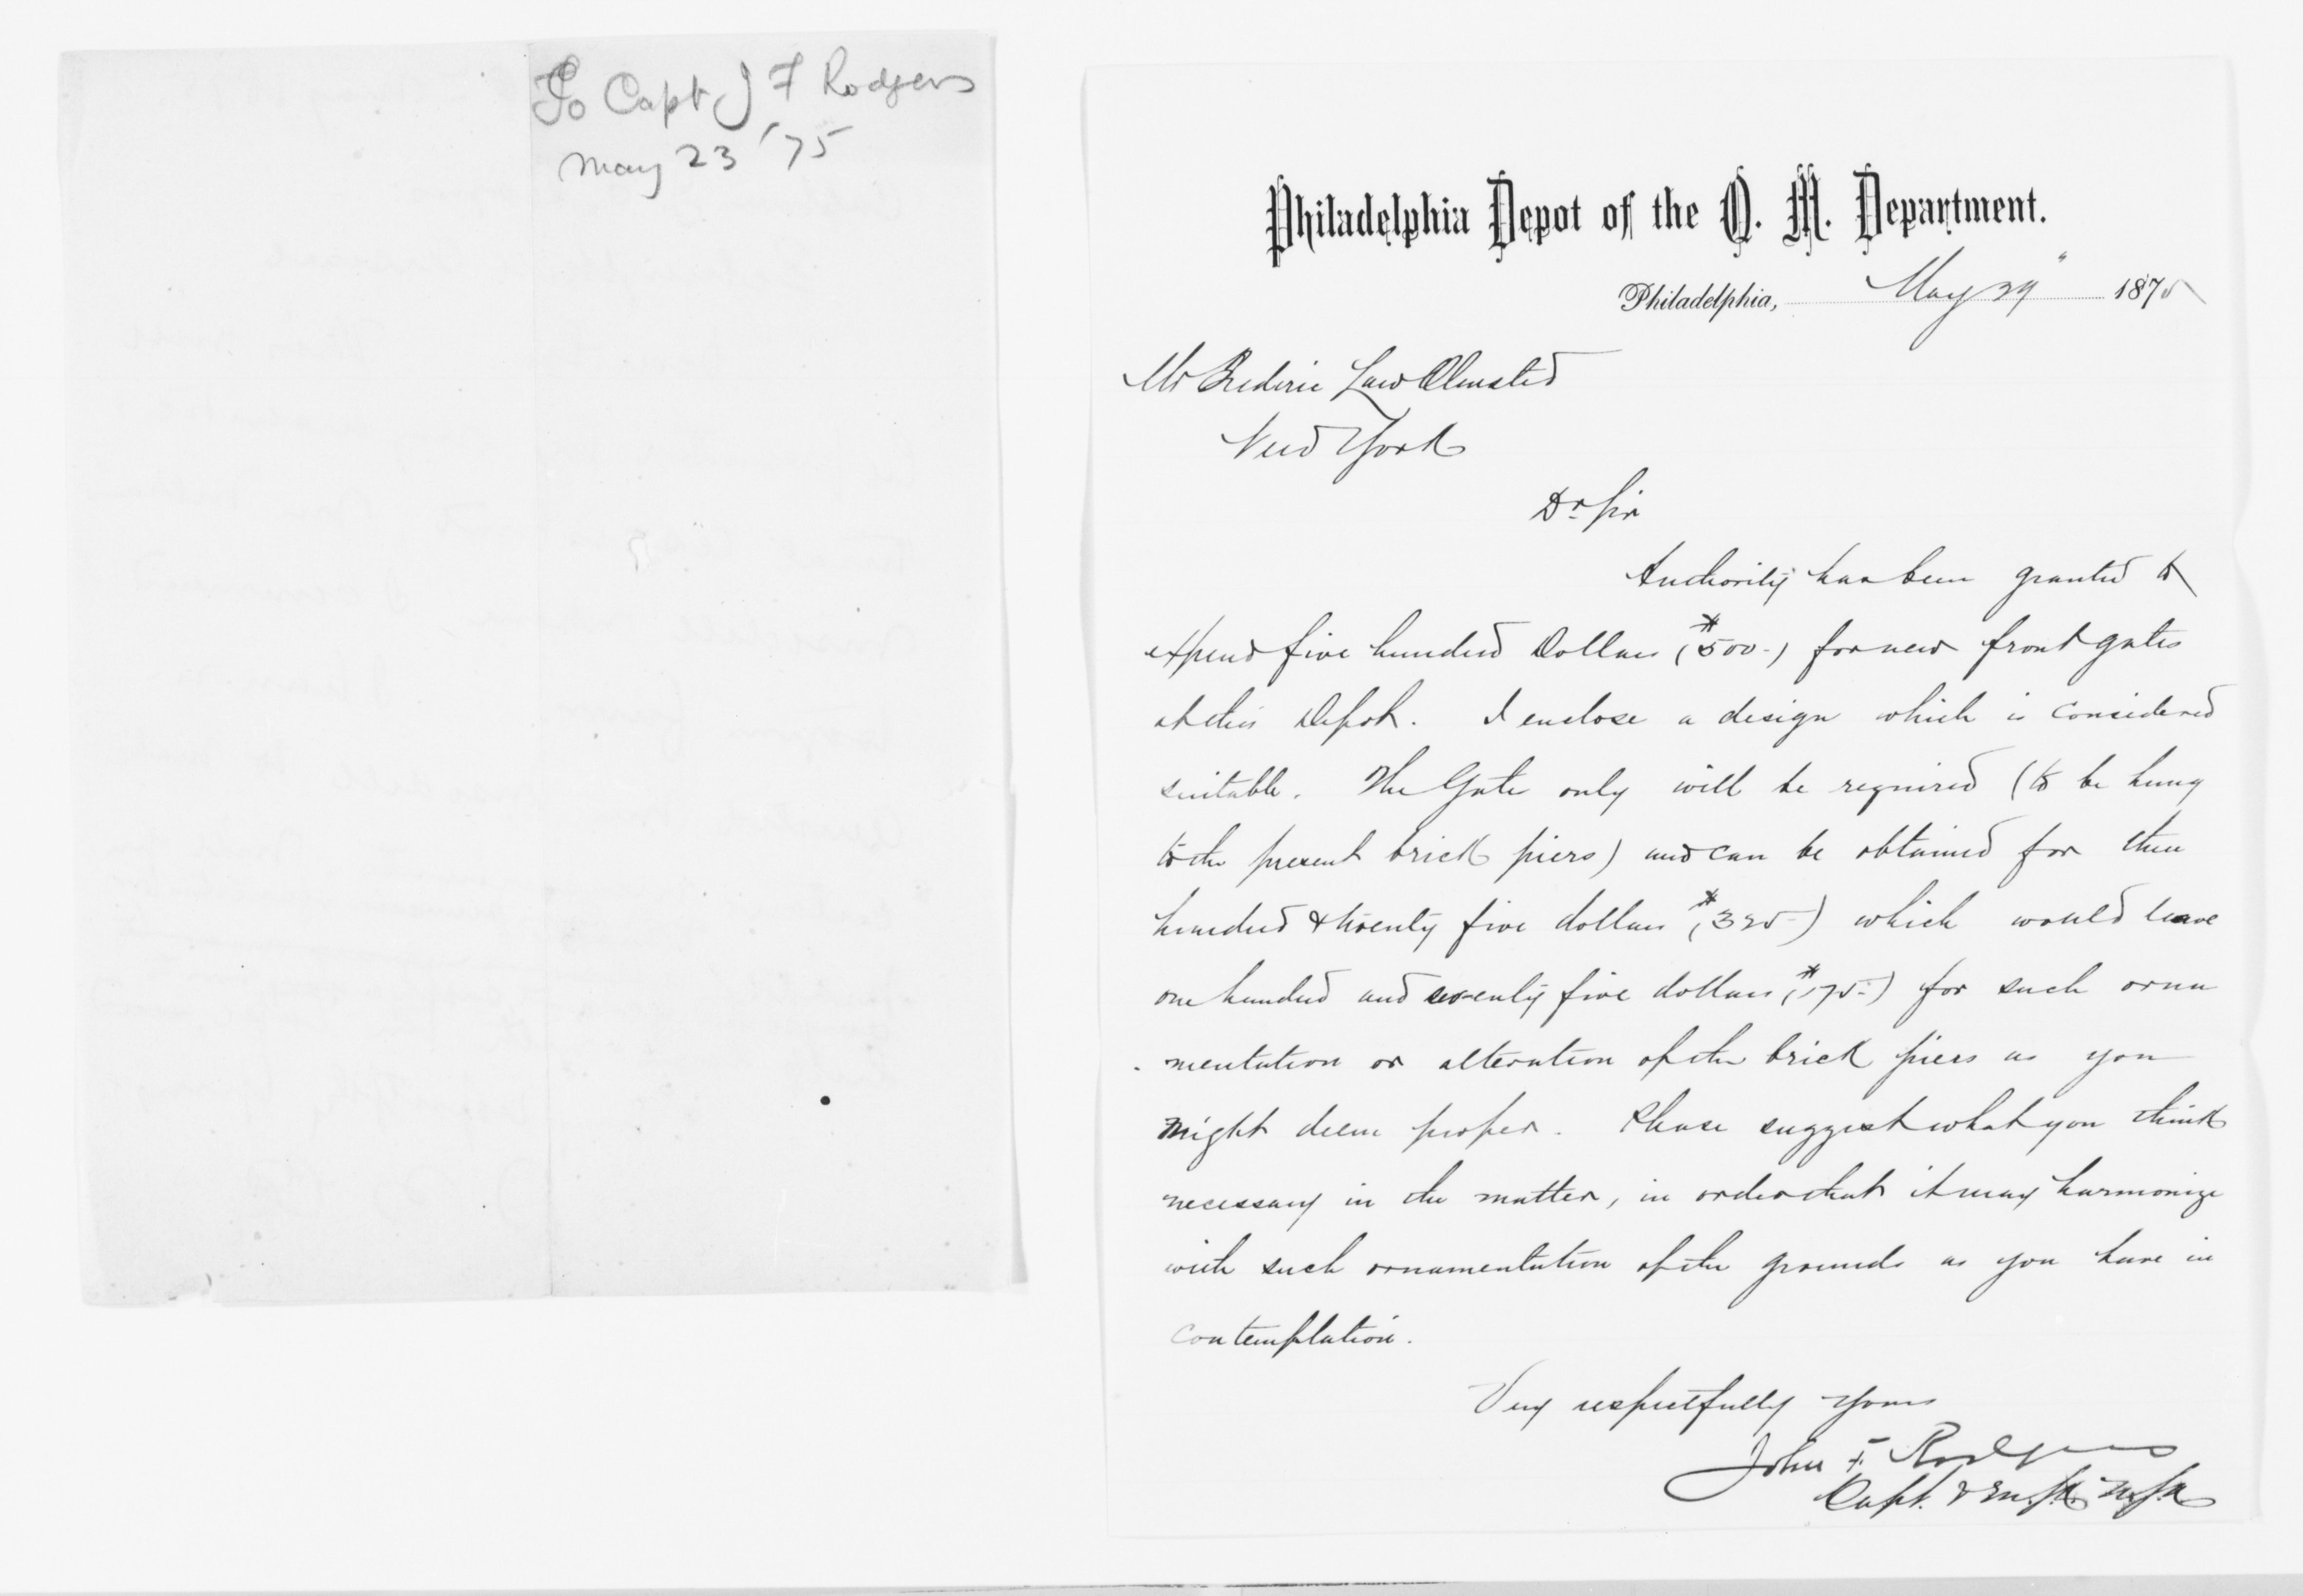 To Capt J F Rodgers
May 23 '75
Philadelphia Depot of the Q. M. Department.
Philadelphia, May 29" 1875
Mr Frederic Law Olmsted
New York
Dr Sir
Authority has been granted to
expend five hundred Dollars ($500-) for new front gates
at this Depot. I enclose a design which is considered
suitable. The Gate only will be required (to be hung
to the present brick piers) and can be obtained for three
hundred & twenty five dollars ($325-) which would leave
one hundred and seventy five dollars ($175-) for such orna
-mentation or alteration of the brick piers as you
might deem proper. Please suggest what you think
necessary in the matter, in order that it may harmonize
with such ornamentation of the grounds as you have in
contemplation.
Very respectfully Yours
John F Rodgers
Capt. & M.S.K. U.S.A